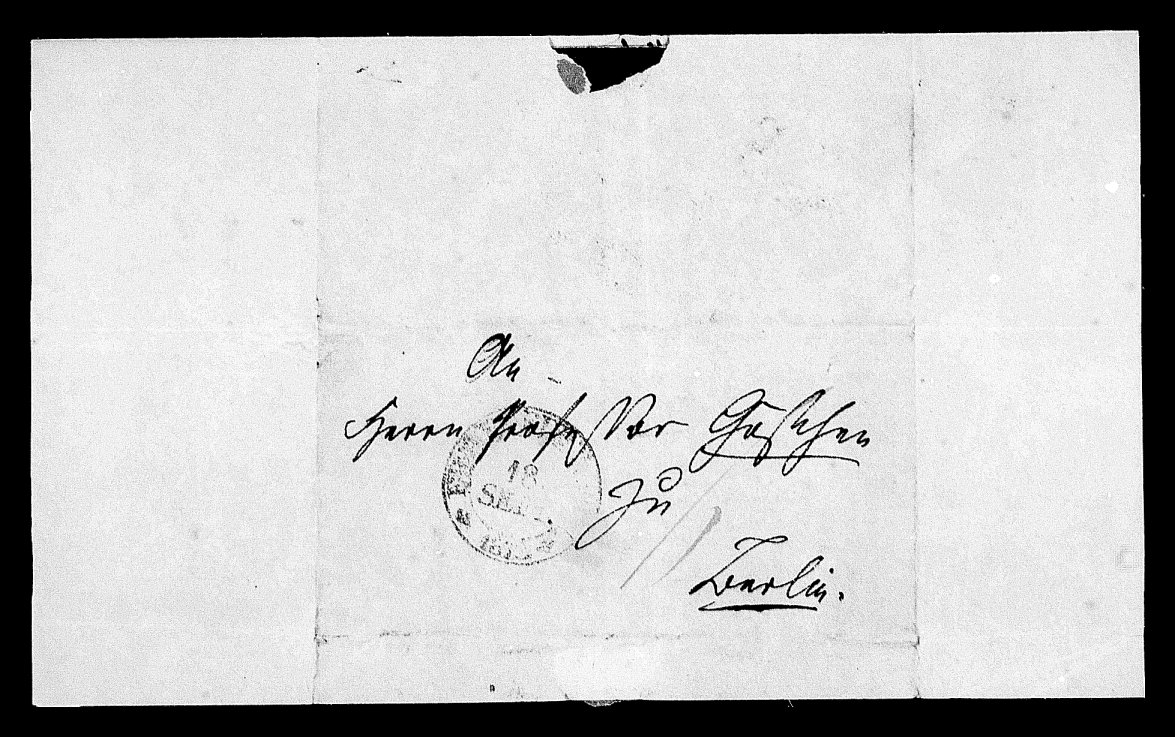 An
Herrn Professor Göschen
zu
Berlin.
18
SEPT.